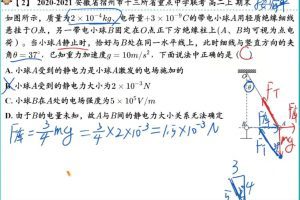 【2】 2020-2021 安徽省宿州市十三所省重点中学联考 高二上 期末
如图所示，质量为2×10⁻⁴kg，电荷量+3×10⁻⁹C的带电小球A用轻质绝缘细线
悬挂于O点，另一带电小球B固定在O点正下方绝缘柱上(A、B均可视为点电
荷)。当小球A静止时，恰好与B处在同一水平线上，此时细线与竖直方向的夹
角θ=37°，已知重力加速度g=10m/s²，下面说法中正确的是( )
A. 小球A受到的静电力是小球A激发的电场施加的
B. 小球A受到的静电力大小为2×10⁻³N
C. 小球B在A处的电场强度为5×10⁵V/m
D. 由于B的电量未知，故A与B间的静电力大小关系无法确定
F库=3/4mg=3/4×2×10⁻³=1.5×10⁻³N
F库
FT
F1
3
4
5